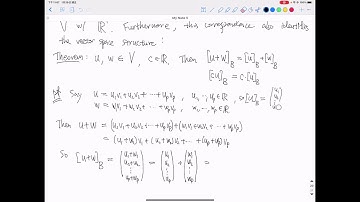 V w/ ℝᵖ. Furthermore, this correspondence also identifies
the vector space structure:
Theorem: u, w ∈ V, c ∈ ℝ, Then [u+w]_B = [u]_B + [w]_B
[cu]_B = c·[u]_B
Pf Say u = u₁v₁+u₂v₂+ ··· +uₚvₚ, u₁, ··, uₚ ∈ ℝ, [u]_B =
w = w₁v₁+w₂v₂+ ··· +wₚvₚ, w₁, ··, wₚ ∈ ℝ
Then u+w = (u₁v₁+u₂v₂+ ··· +uₚvₚ) + (w₁v₁+w₂v₂+ ··· +wₚvₚ)
= (u₁+w₁)v₁ + (u₂+w₂)v₂ + ··· + (uₚ+wₚ)vₚ
So [u+w]_B = (u₁+w₁ u₂+w₂ ⋮ uₚ+wₚ) = (u₁ u₂ ⋮ uₚ) + (w₁ w₂ ⋮ wₚ) =